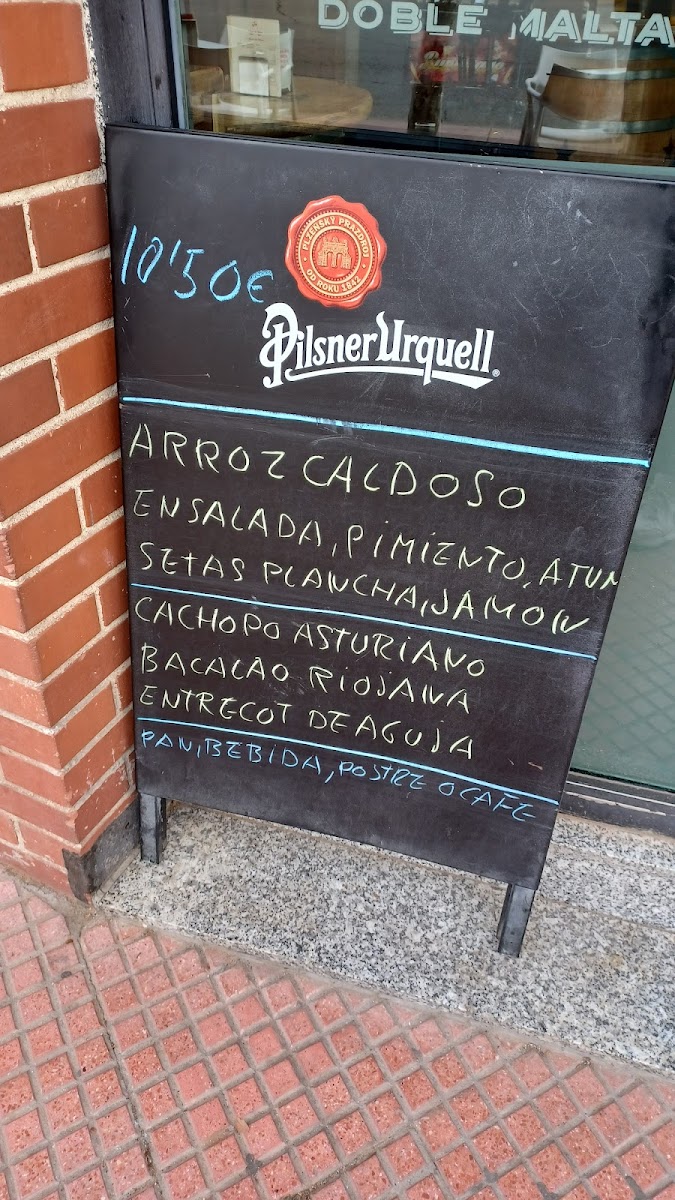 DOBLE MALTA
PLZEŇSKÝ PRAZDROJ
OD ROKU 1842
10'50€
Pilsner Urquell®
ARROZ CALDOSO
ENSALADA, PIMIENTO, ATUN
SETAS PLANCHA, JAMON
CACHOPO ASTURIANO
BACALAO RIOJANA
ENTRECOT DE AGUJA
PAN, BEBIDA, POSTRE O CAFE